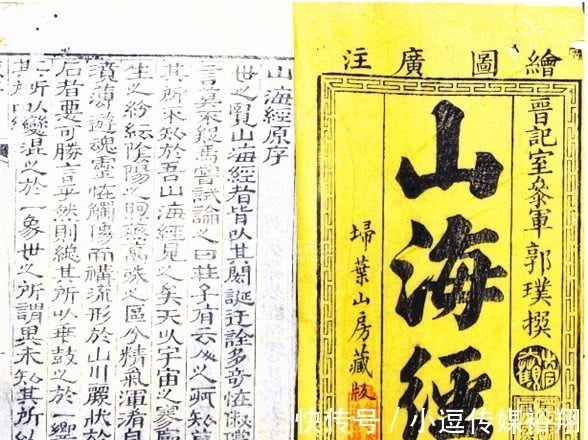 繪圖廣注
晉記室參軍郭璞撰
山海經
埽葉山房藏版
山海經原序
世之覽山海經者皆以其閎誕迂誇多奇怪俶儻
之言莫不疑焉嘗試論之曰莊子有云人之所知
其所不知於吾山海經見之矣夫以宇宙之寥廓
生之紛紜陰陽之煦蒸萬殊之區分精氣渾淆自
濆薄遊魂靈怪觸像而構流形於山川麗狀於
石者惡可勝言乎然則總其所以乖鼓之於一響
其所以變混之於一象世之所謂異未知其所以
快传号/小逗传媒裕翔